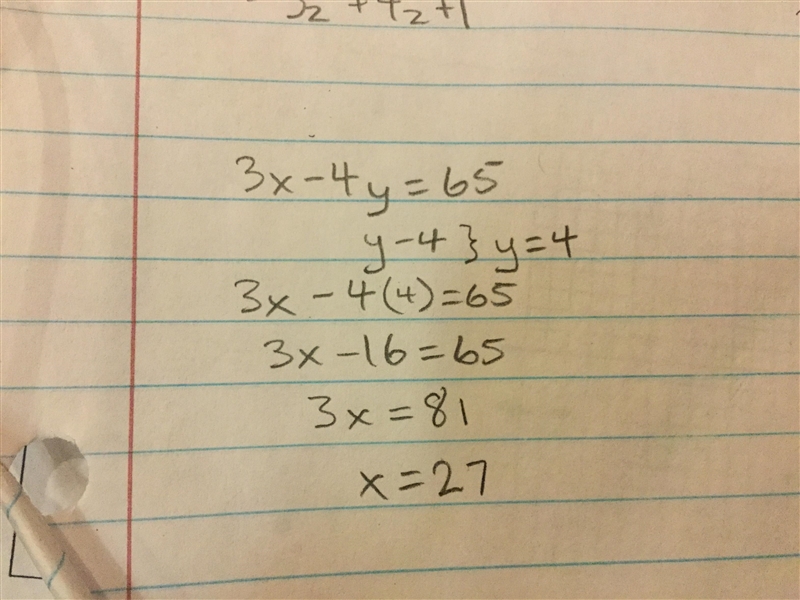 3x-4y=65
y-4 } y=4
3x-4(4)=65
3x-16=65
3x=81
x=27